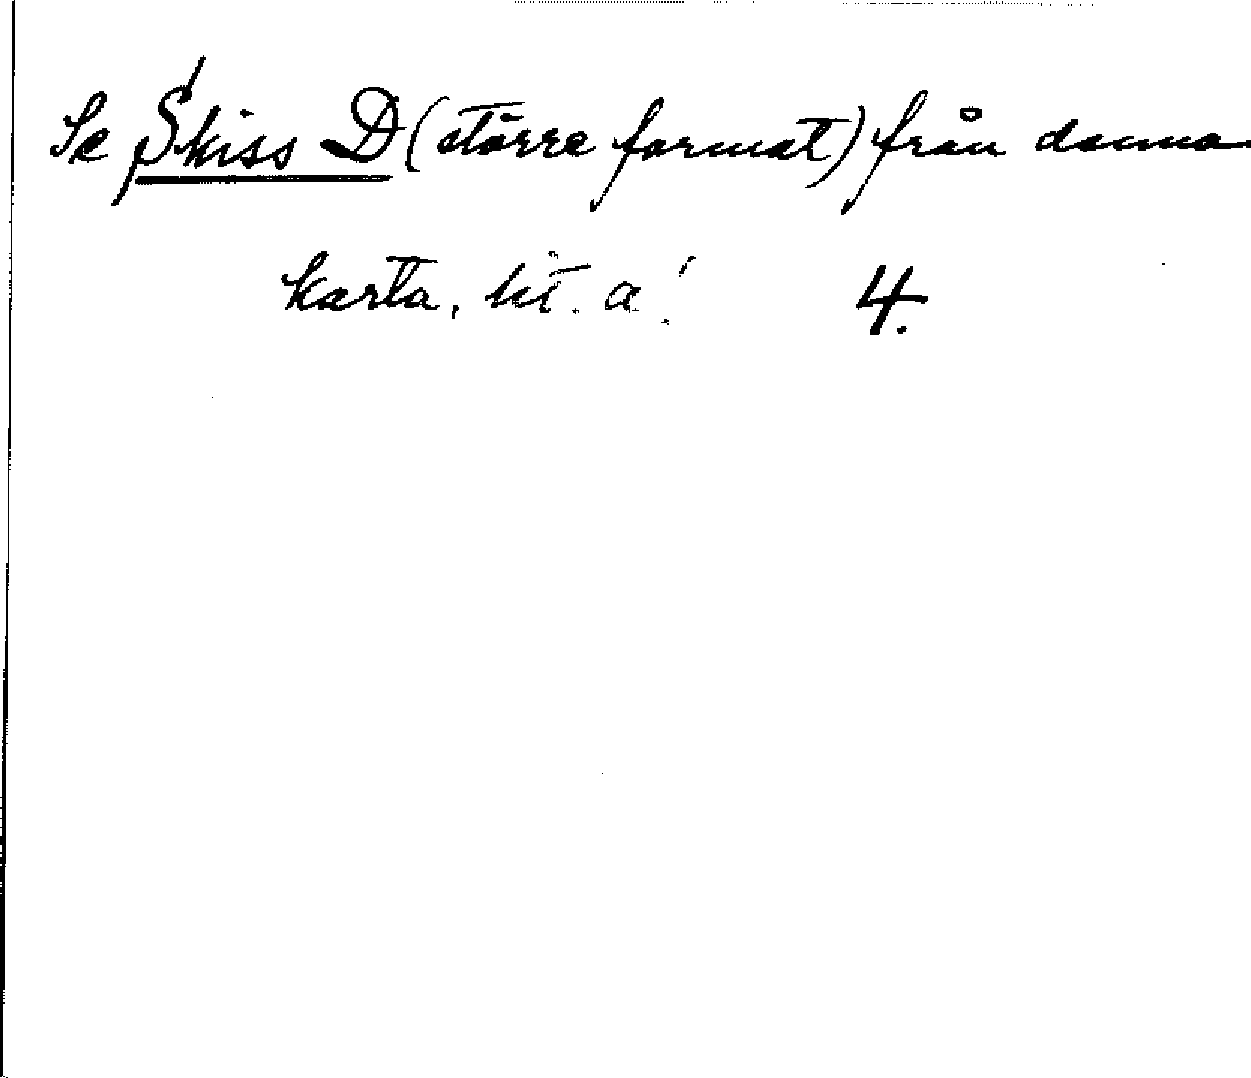 Se Skiss D (större format) från denna
karta, lit. a! 4.